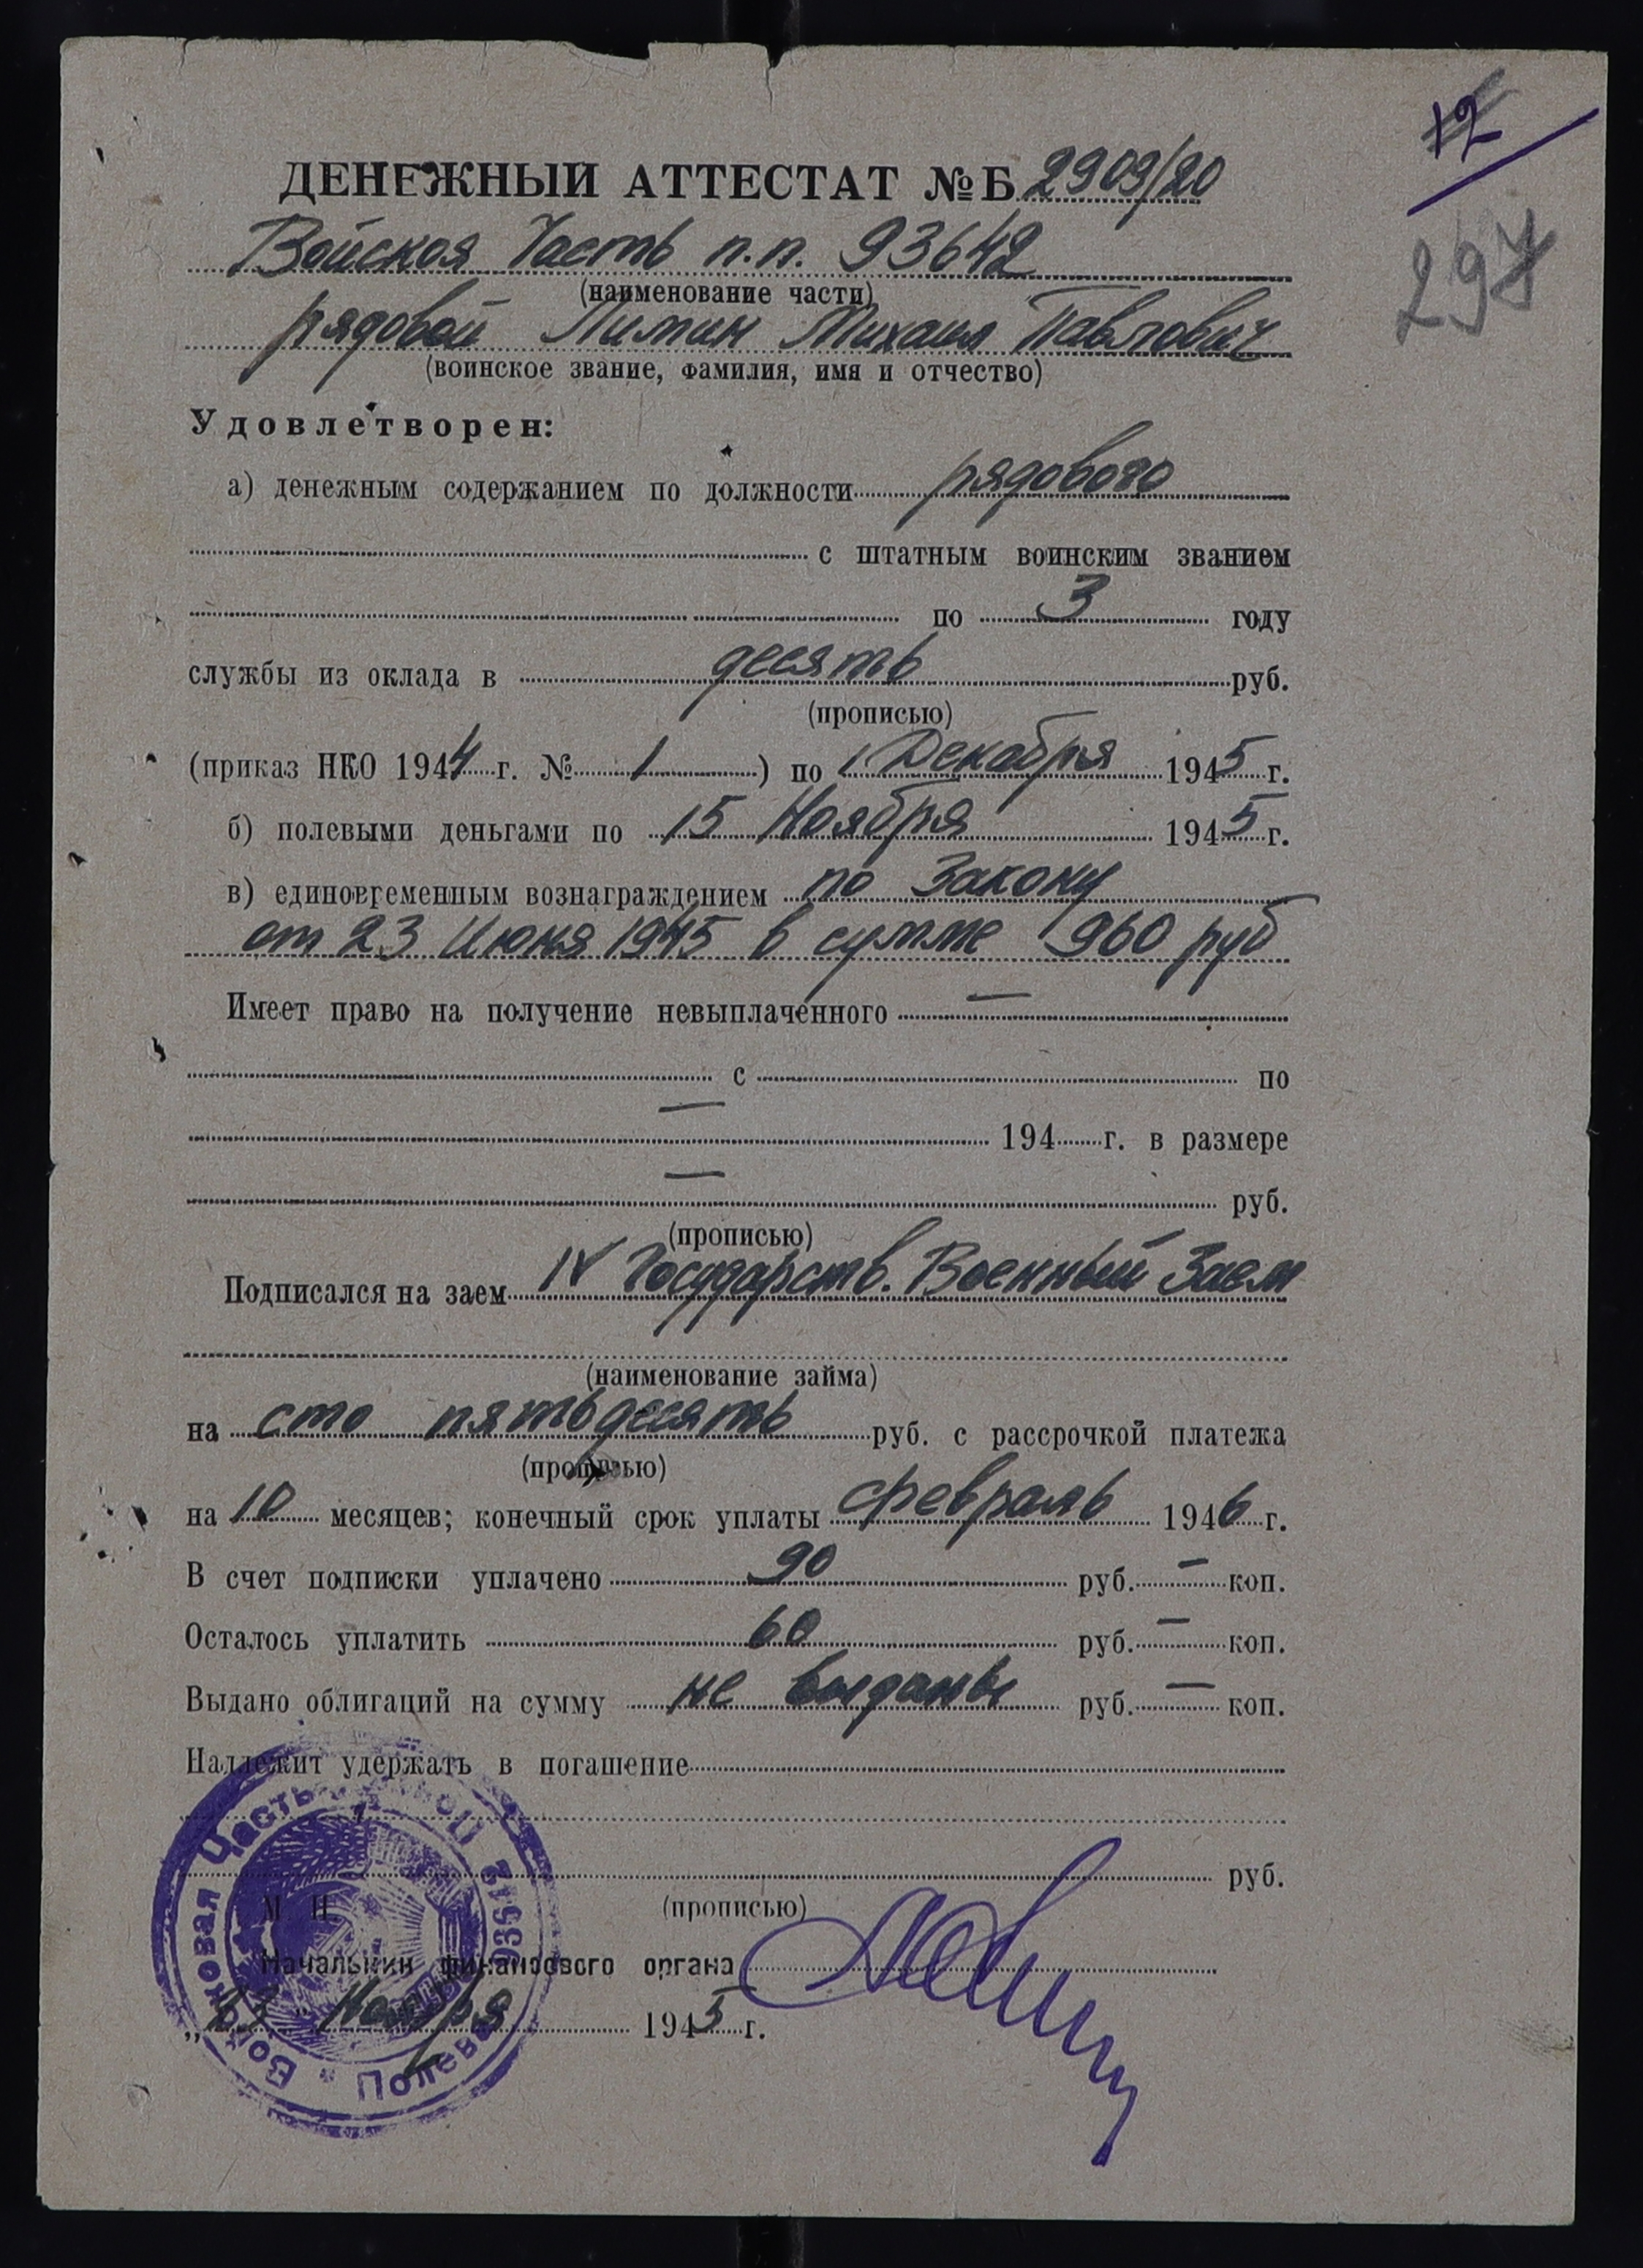 12
297
ДЕНЕЖНЫЙ АТТЕСТАТ №Б 2909/20
Войская Часть п.п. 93642
(наименование части)
рядовой Лимин Михаил Павлович
(воинское звание, фамилия, имя и отчество)
Удовлетворен:
а) денежным содержанием по должности рядового
с штатным воинским званием
по 3 году
службы из оклада в десять руб.
(прописью)
(приказ НКО 1944 г. № 1) по 1 Декабря 1945 г.
б) полевыми деньгами по 15 Ноября 1945 г.
в) единовременным вознаграждением по Закону
от 23 Июня 1945 в сумме 960 руб
Имеет право на получение невыплаченного —
с по
— 194 г. в размере
— руб.
(прописью)
Подписался на заем IV Государств. Военный Заем
(наименование займа)
на сто пятьдесять руб. с рассрочкой платежа
(прописью)
на 10 месяцев; конечный срок уплаты февраль 1946 г.
В счет подписки уплачено 90 руб. — коп.
Осталось уплатить 60 руб. — коп.
Выдано облигаций на сумму не выданы руб. — коп.
Надлежит удержать в погашение
руб.
М П (прописью)
Начальник финансового органа
„ " Ноября 1945 г.
Войсковая Часть Полевой 93642